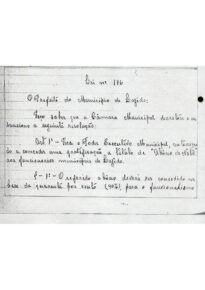 Lei nº 186
O Prefeito do Município de Lajedo:
Faço saber que a Câmara Municipal decretou e eu
sanciono a seguinte resolução.
Art. 1º - Fica o Poder Executivo Municipal, autorizado
a conceder uma gratificação, a título de "Abono de Natal",
aos funcionários municipais de Lajedo.
§ - 1º - O referido abono deverá ser concedido na
base de quarenta por cento (40%), para o funcionalismo